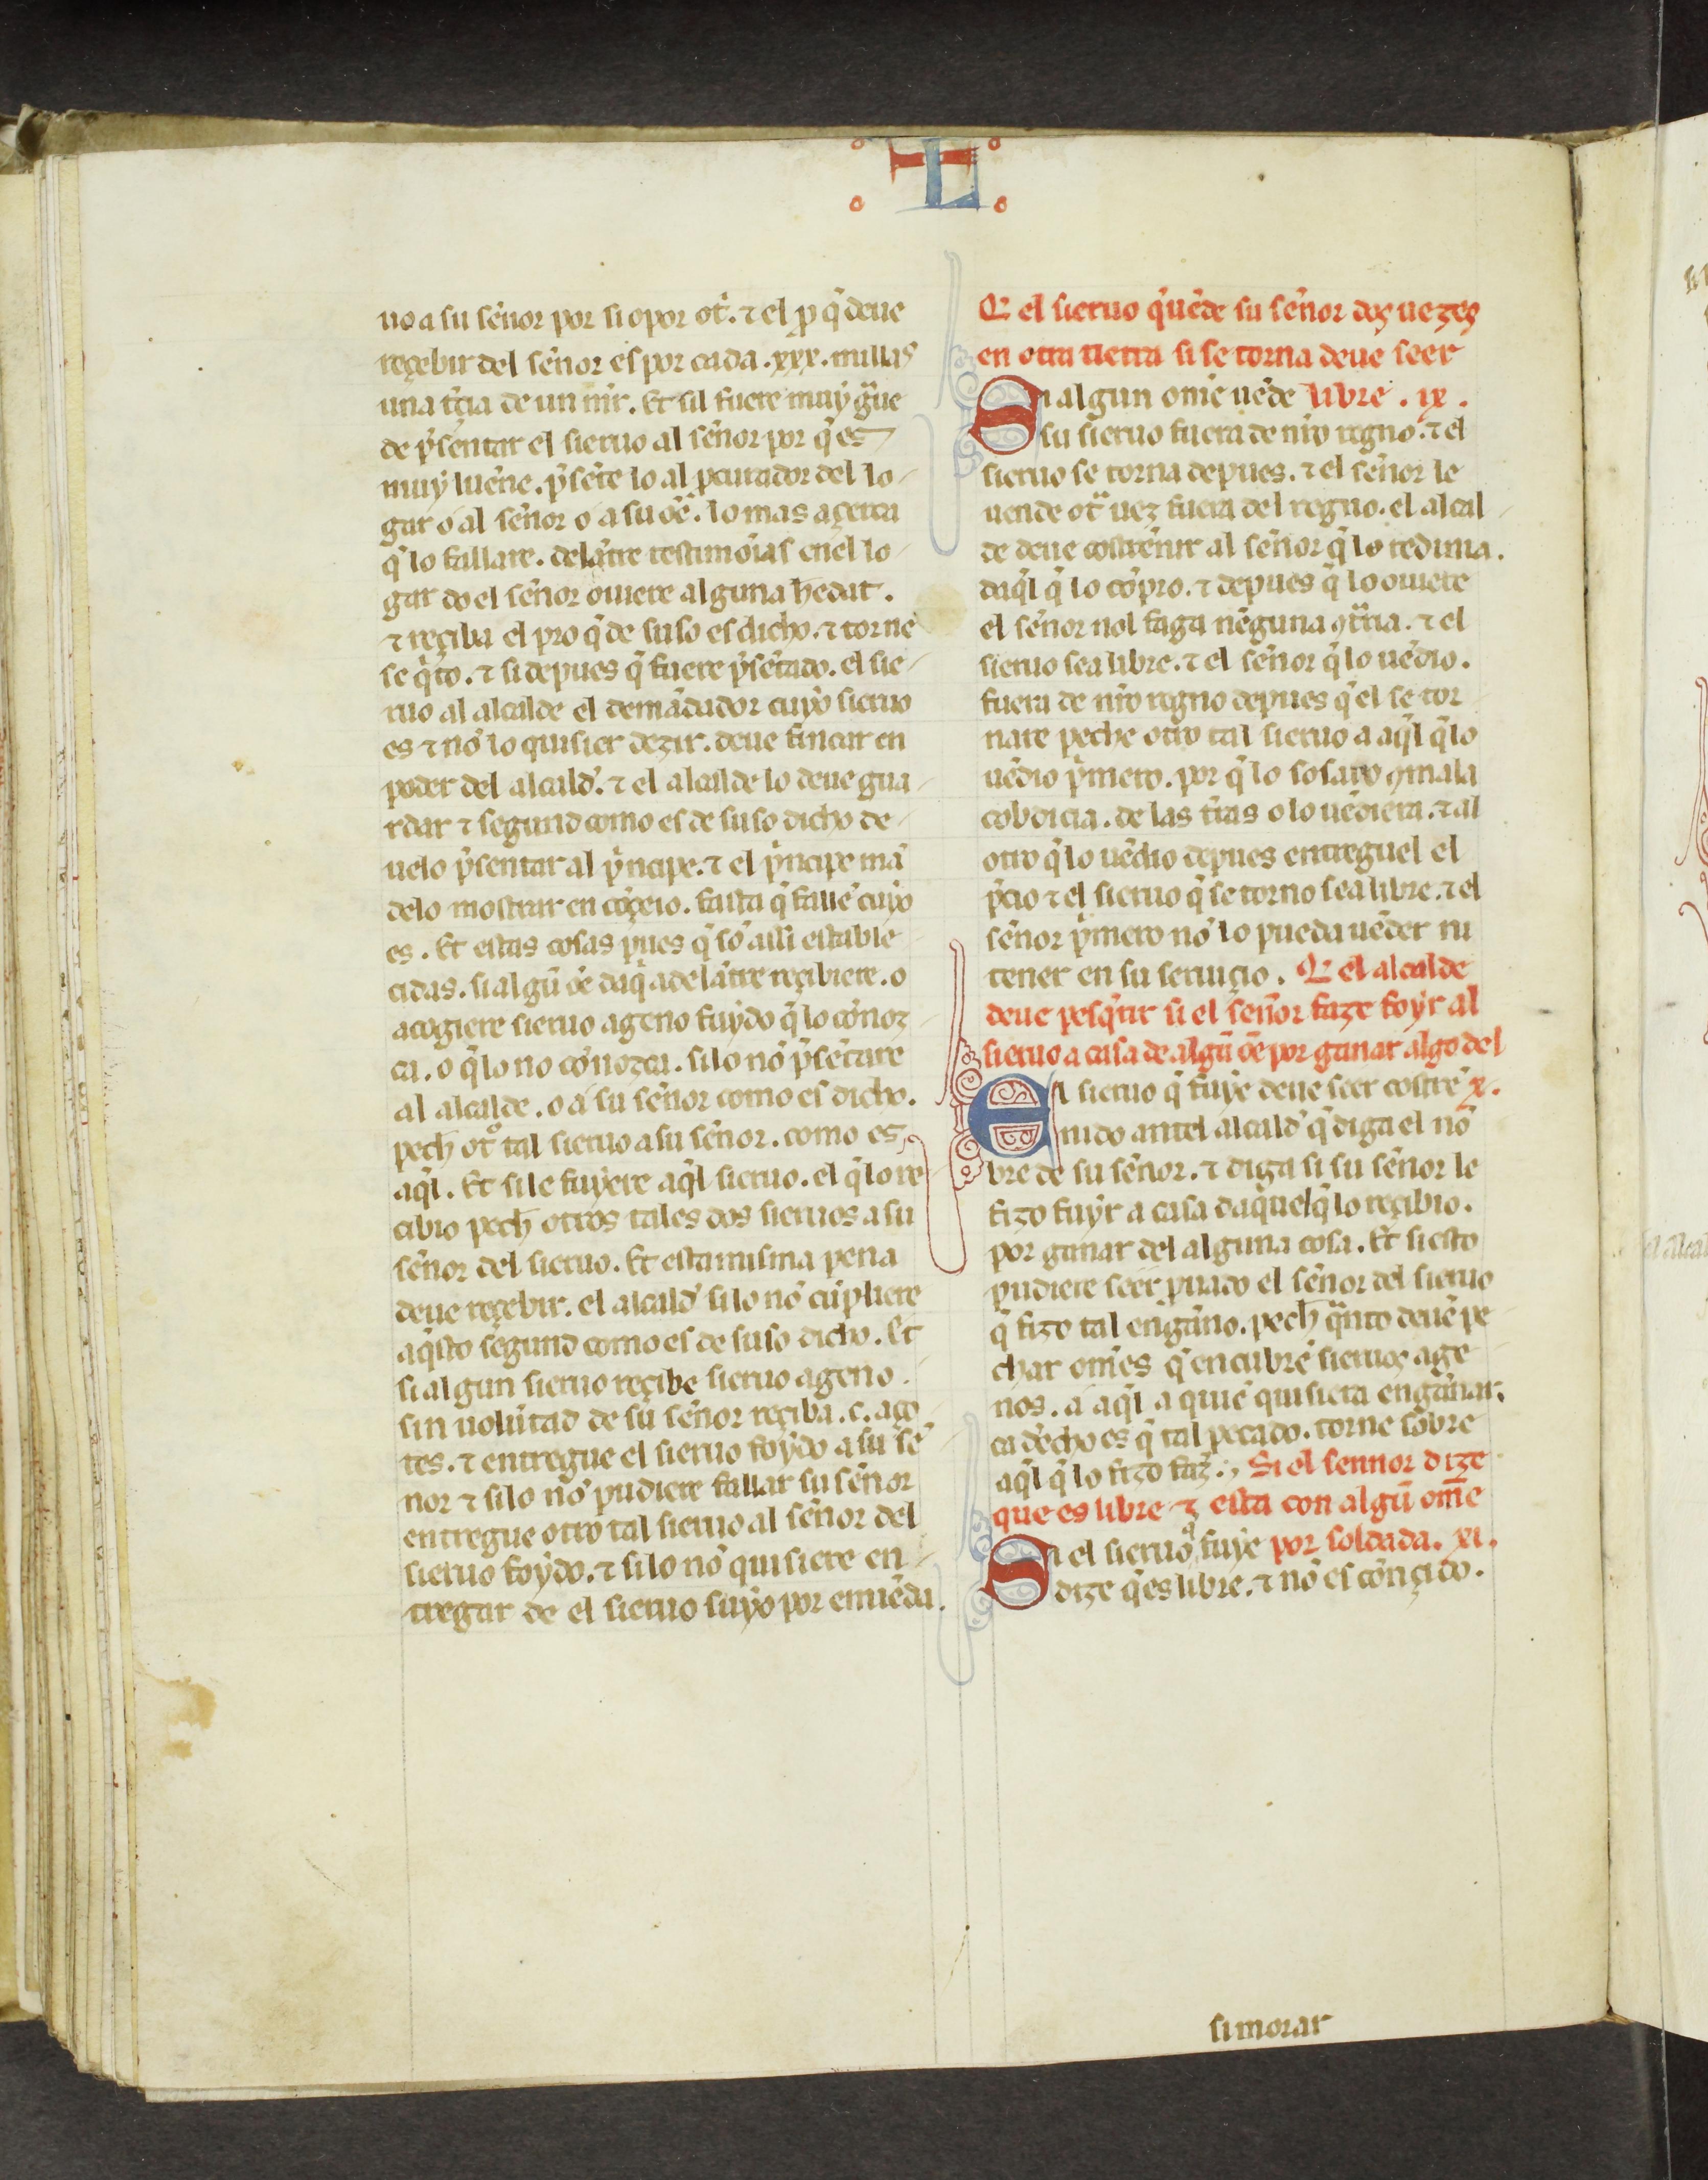 L
uo a su señor por si o por ot̃. ⁊ el p̱ q̃ deue
reçebir del señor es por cada .xxx. millas
una t̃çia de un mr̃. Et sil fuere muy g̃ue
de p̃sentar el sieruo al señor por q̃ es
muy lueñe. p̃sẽte lo al p̱curador del lo
gar o al señor o a su oẽ. lo mas açerca
q̃ lo fallare. delãtre testimoĩas en el lo
gar do el señor ouiere alguna h̃edat.
⁊ reçiba el pro q̃ de suso es dicho. ⁊ torne
se q̃to. ⁊ si depues q̃ fuere p̃sẽtado. el sie
ruo al alcalde el demãdador cuyo sieruo
es ⁊ nõ lo quisier dezir. deue fincar en
poder del alcald̃. ⁊ el alcalde lo deue gua
rdar ⁊ segund como es de suso dicho de
uelo p̃sentar al p̃ncipe. ⁊ el p̃ncipe mã
delo mostrar en cõçeio. fasta q̃ fallẽ cuyo
es. Et estas cosas pues q̃ sõ assi estable
cidas. si algũ oẽ daq̃ adelãtre reçibiere. o
acogiere sieruo ageno fuydo q̃ lo cõnoz
ca. o q̃ lo no cõnozca. si lo nõ p̃sẽtare
al alcalde. o a su señor como es dicho.
pech̃ otº tal sieruo a su señor. como es
aq̃l. Et si le fuyere aq̃l sieruo. el q̃ lo re
cibio pech̃ otros tales dos sieruos a su
señor del sieruo. Et esta misma pena
deue reçebir. el alcald̃ si lo nõ cũpliere
aq̃sto segund como es de suso dicho. Et
si algun sieruo reçibe sieruo ageno.
sin volũtad de su señor reçiba .c. aço
tes. ⁊ entregue el sieruo foydo a su se
ñor ⁊ si lo nõ pudiere fallar su señor
entregue otro tal sieruo al señor del
sieruo foydo. ⁊ si lo nõ quisiere en
tregar de el sieruo suyo por emiẽda.
Q̃ el sieruo q̃ uẽde su señor dos uezes
en otra tierra si se torna deue seer
Si algun omẽ uẽde libre . ix .
su sieruo fuera de nr̃o regno. ⁊ el
sieruo se torna depues. ⁊ el señor le
uende ot̃ uez fuera del regno. el alcal
de deue costreñir al señor q̃ lo redima.
daq̃l q̃ lo cõpro. ⁊ depues q̃ lo ouiere
el señor nol faga nẽguna ꝯt̃ria. ⁊ el
sieruo sea libre. ⁊ el señor q̃ lo uẽdio.
fuera de nr̃o regno depues q̃ el se tor
nare peche otro tal sieruo a aq̃l q̃ lo
uẽdio p̃mero. por q̃ lo so saco ꝯ mala
cobdicia. de las t̃ras o lo uẽdiera. ⁊ al
otro q̃ lo uẽdio depues entreguel el
p̃cio ⁊ el sieruo q̃ se torno sea libre. ⁊ el
señor p̃mero nõ lo pueda uẽder ni
tener en su seruiçio. Q̃ el alcalde
deue pesq̃rir si el señor faze foyr al
sieruo a casa de algũ oẽ por ganar algo del
El sieruo q̃ fuye deue seer costre x.
nido antel alcald̃ q̃ diga el nõ
bre de su señor. ⁊ diga si su señor le
fizo fuyr a casa daquel q̃ lo reçibio.
por ganar del alguna cosa. Et si esto
pudiere seer puado el señor del sieruo
q̃ fizo tal engãno. pech̃ q̃nto deuẽ pe
char omẽs q̃ encubrẽ sieruos age
nos. a aq̃l a quiẽ quisiera engãnar.
ca dẽcho es q̃ tal pecado. torne sobre
aq̃l q̃ lo fizo faz̃. Si el sennor dize
que es libre ⁊ esta con algũ om̃e
Si el sieruo q̃ fuye por soldada. xi.
dize q̃ es libre. ⁊ nõ es cõnçido.
si morar